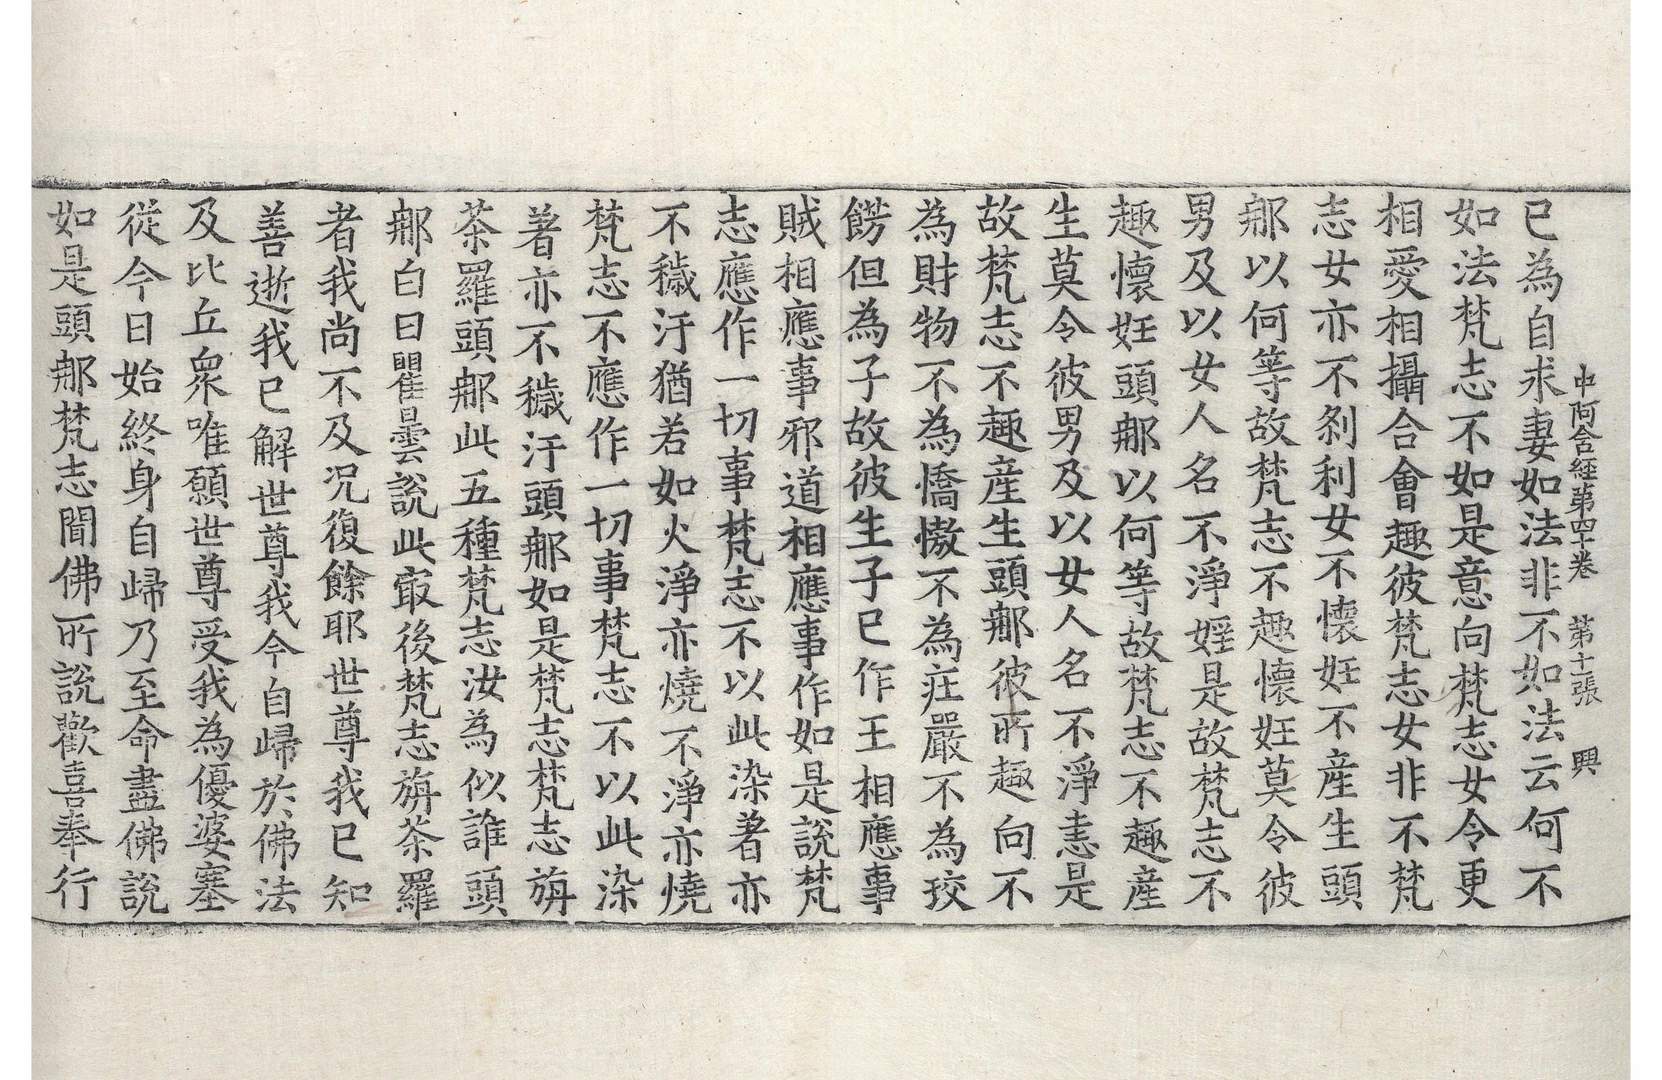 中阿含經第四十卷 第十一張 興
已為自求妻如法非不如法云何不
如法梵志不如是意向梵志女令更
相愛相攝合會趣彼梵志女非不梵
志女亦不剎利女不懷妊不產生頭
那以何等故梵志不趣懷妊莫令彼
男及以女人名不淨婬是故梵志不
趣懷妊頭那以何等故梵志不趣產
生莫令彼男及以女人名不淨恚是
故梵志不趣產生頭那彼所趣向不
為財物不為憍慠不為莊嚴不為玟
餝但為子故彼生子已作王相應事
賊相應事邪道相應事作如是說梵
志應作一切事梵志不以此染著亦
不穢汙猶若如火淨亦燒不淨亦燒
梵志不應作一切事梵志不以此染
著亦不穢汙頭那如是梵志梵志旃
荼羅頭那此五種梵志汝為似誰頭
那白曰瞿曇說此㝡後梵志旃荼羅
者我尚不及況復餘耶世尊我已知
善逝我已解世尊我今自歸於佛法
及比丘眾唯願世尊受我為優婆塞
從今日始終身自歸乃至命盡佛說
如是頭那梵志聞佛所說歡喜奉行